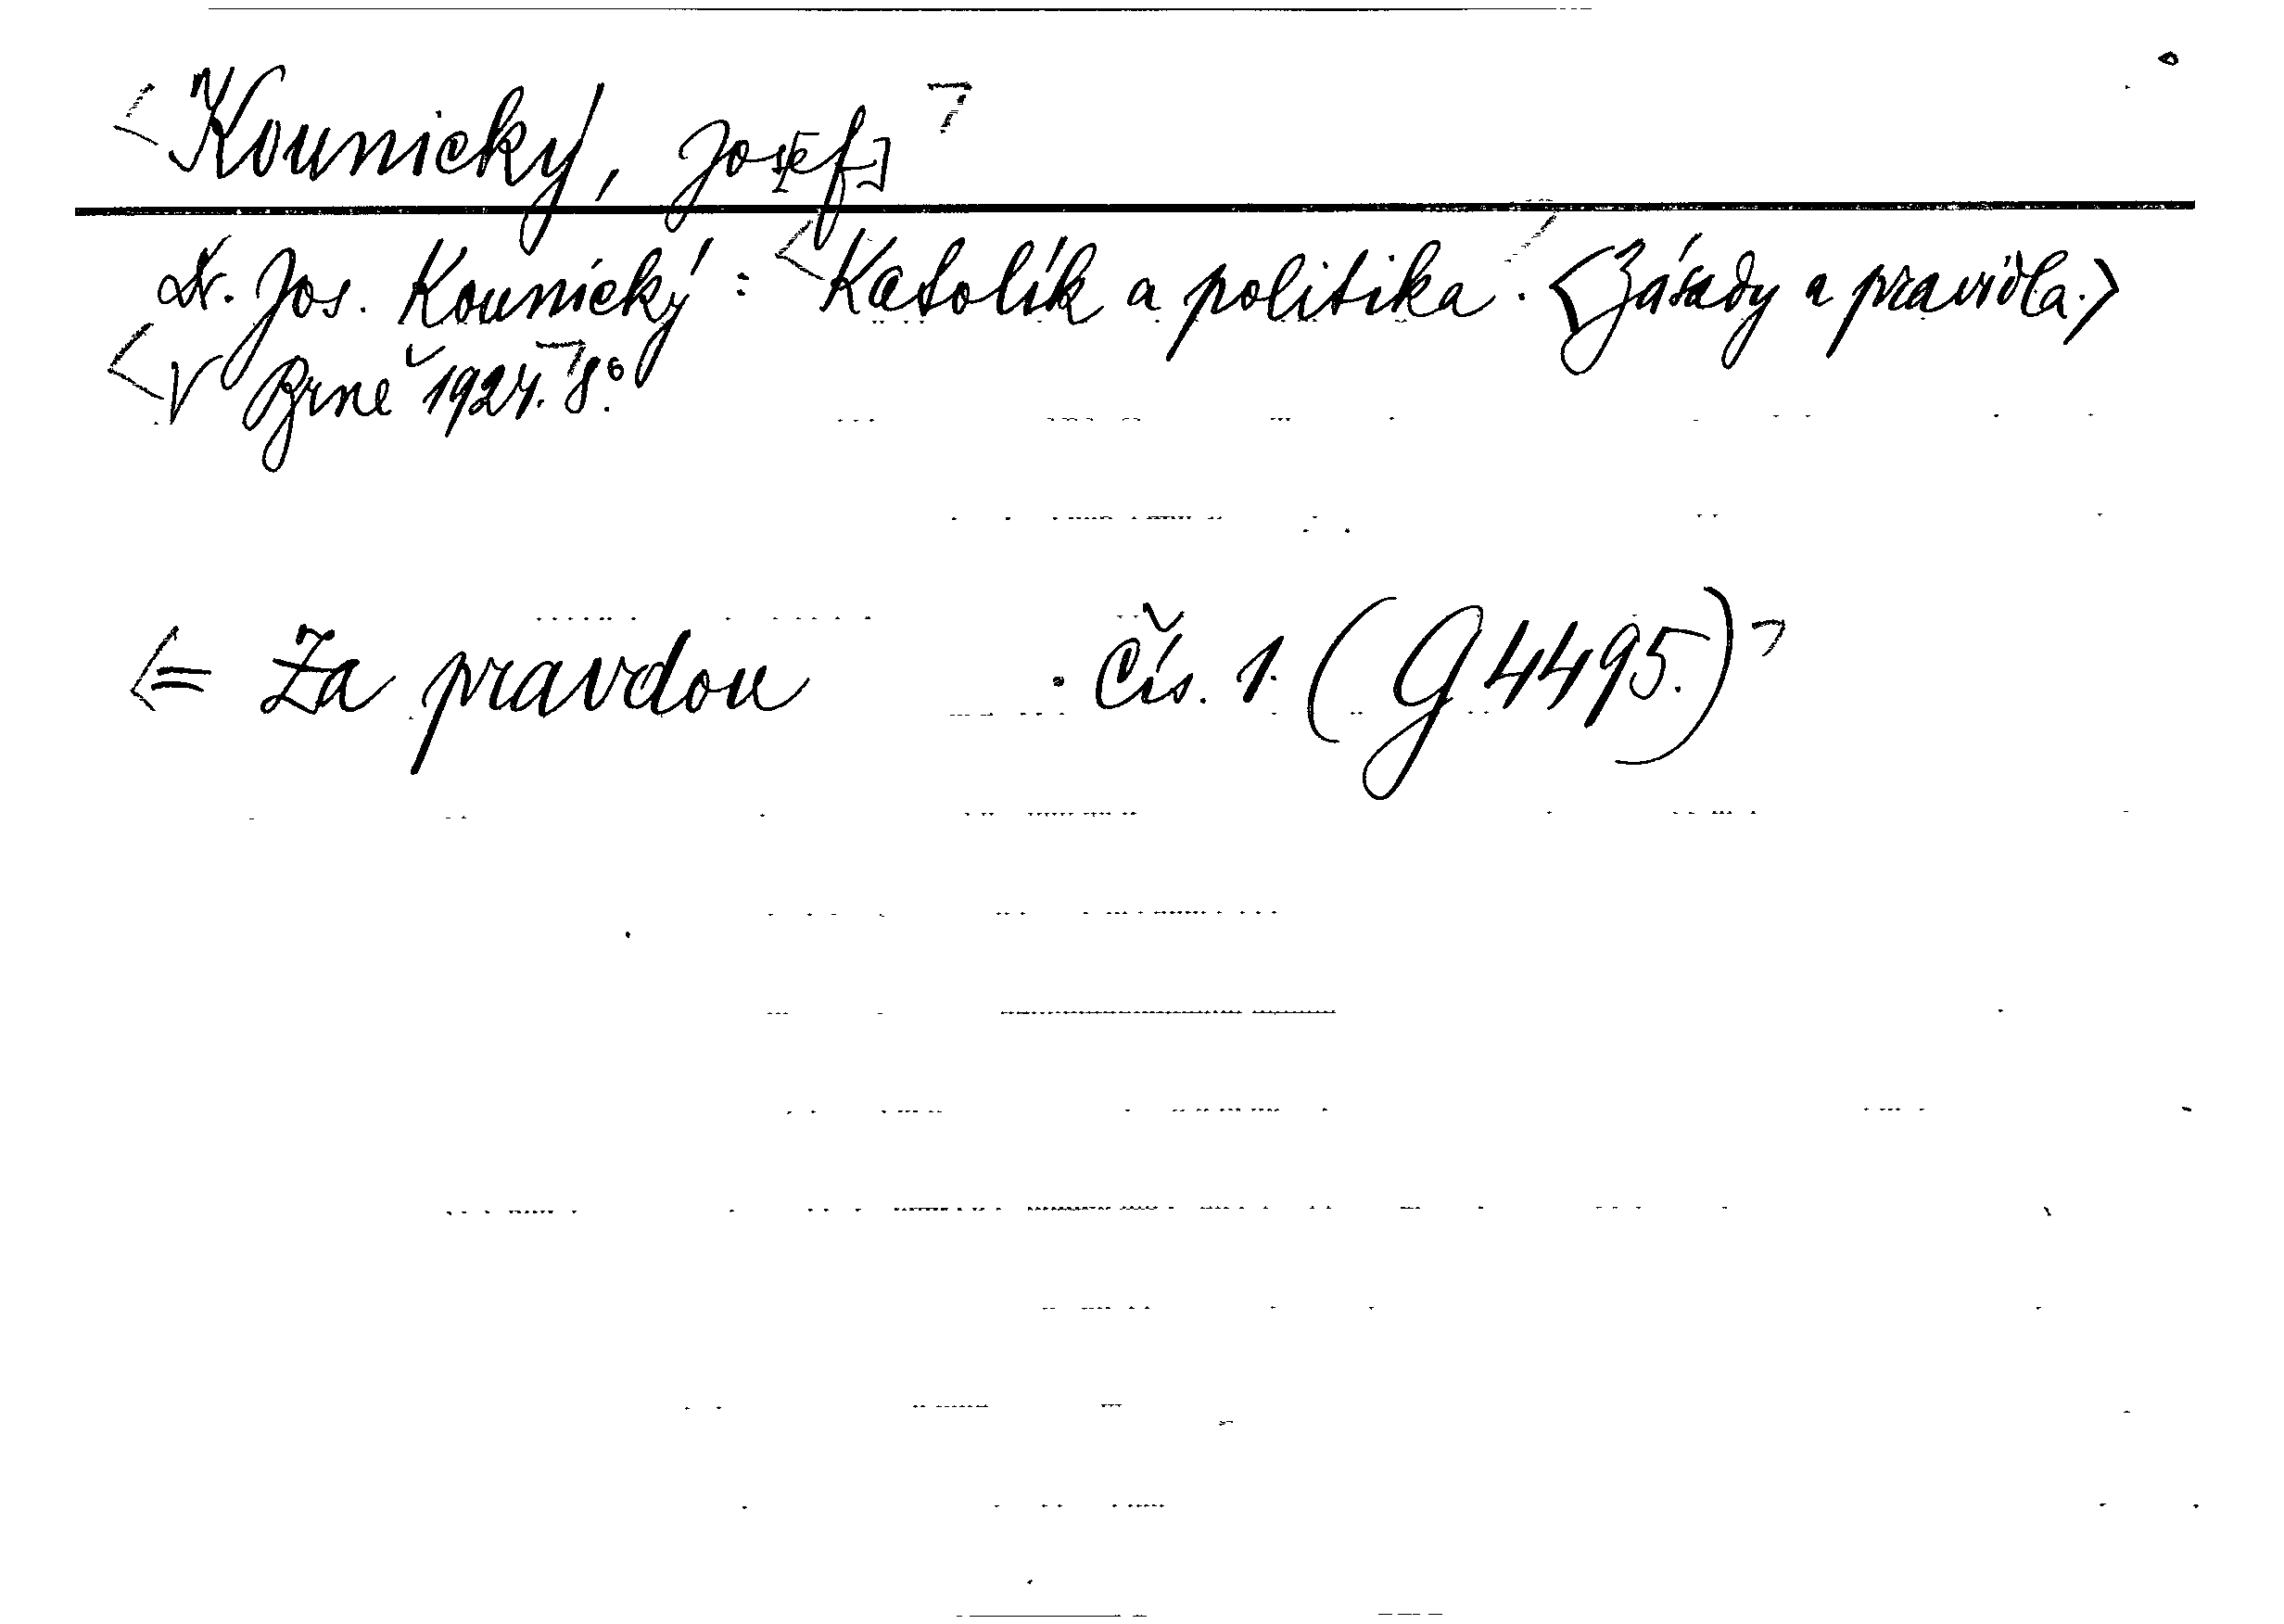 Kounický, Jos[ef]
Dr. Jos. Kounický: Katolík a politika. (Zásady a pravidla.)
V Brně 1924. 8°.
= Za pravdou . Čís. 1. (G 4495.)